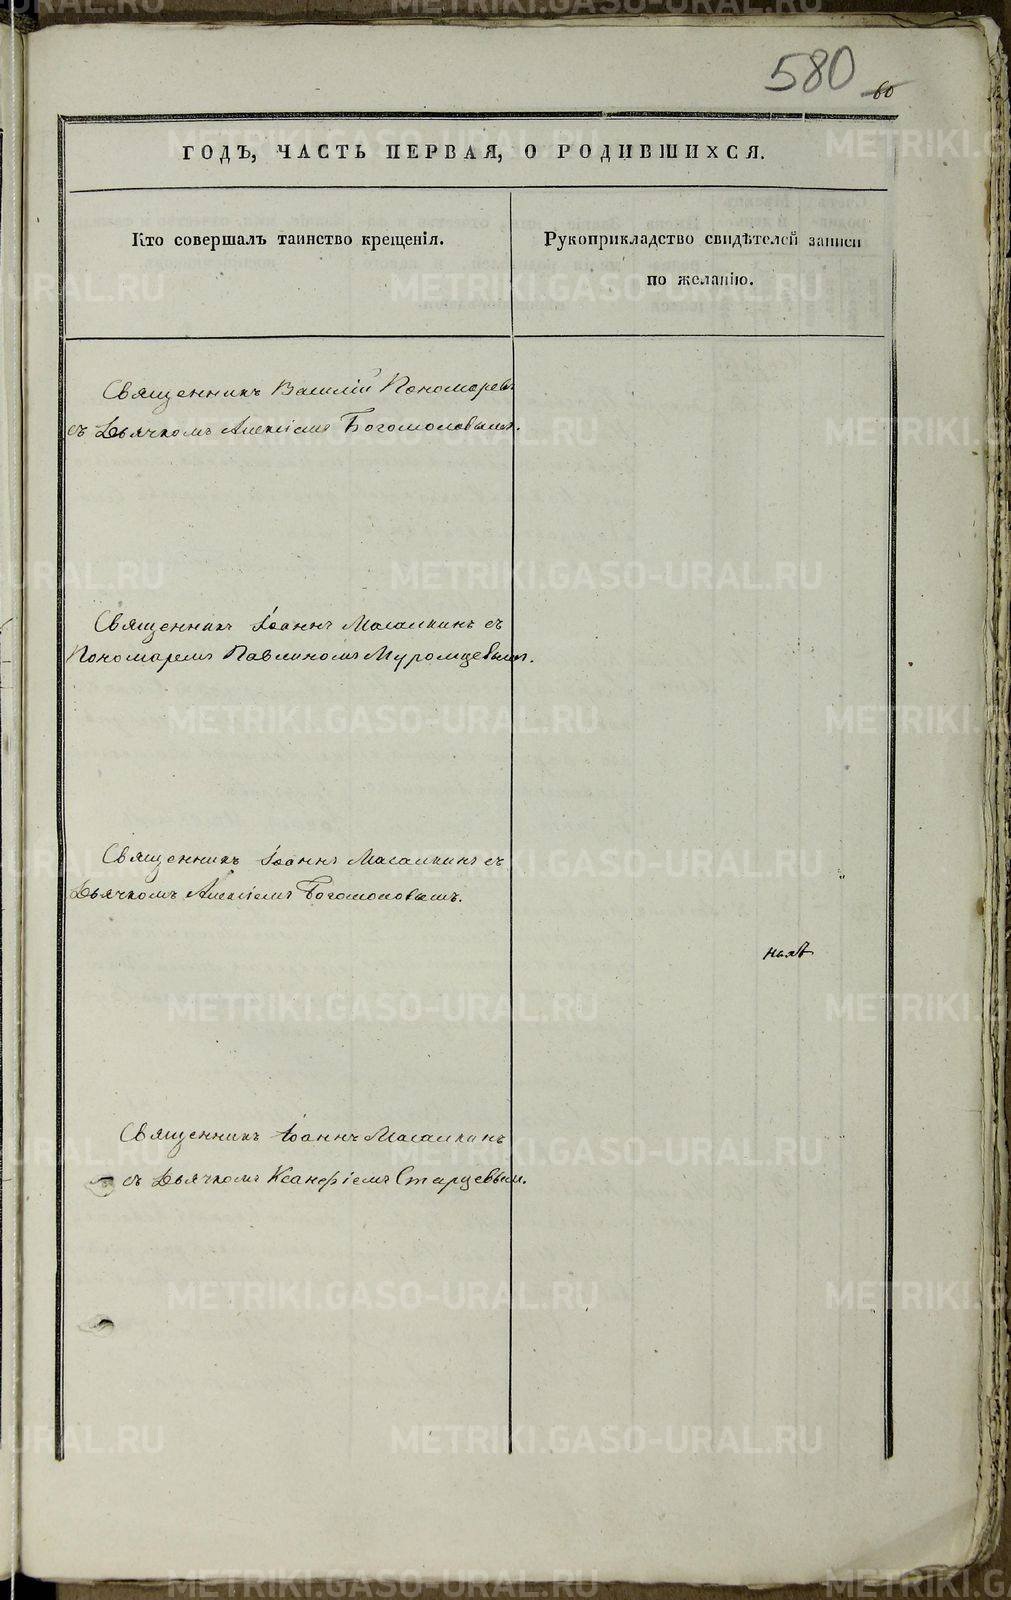 580
60
ГОДЪ, ЧАСТЬ ПЕРВАЯ, О РОДИВШИХСЯ.
Кто совершалъ таинство крещенія.
Рукоприкладство свидѣтелей записи
по желанію.
Священникъ Василій Пономаревъ
съ Дьячкомъ Алексіемъ Богомоловымъ.
Священникъ Іоаннъ Масалкинъ съ
Пономаремъ Павлиномъ Муромцевымъ.
Священникъ Іоаннъ Масалкинъ съ
Дьячкомъ Алексіемъ Богомоловымъ.
Священникъ Іоаннъ Масалкинъ
съ Дьячкомъ Ксанфіемъ Старцевым.
METRIKI.GASO-URAL.RU